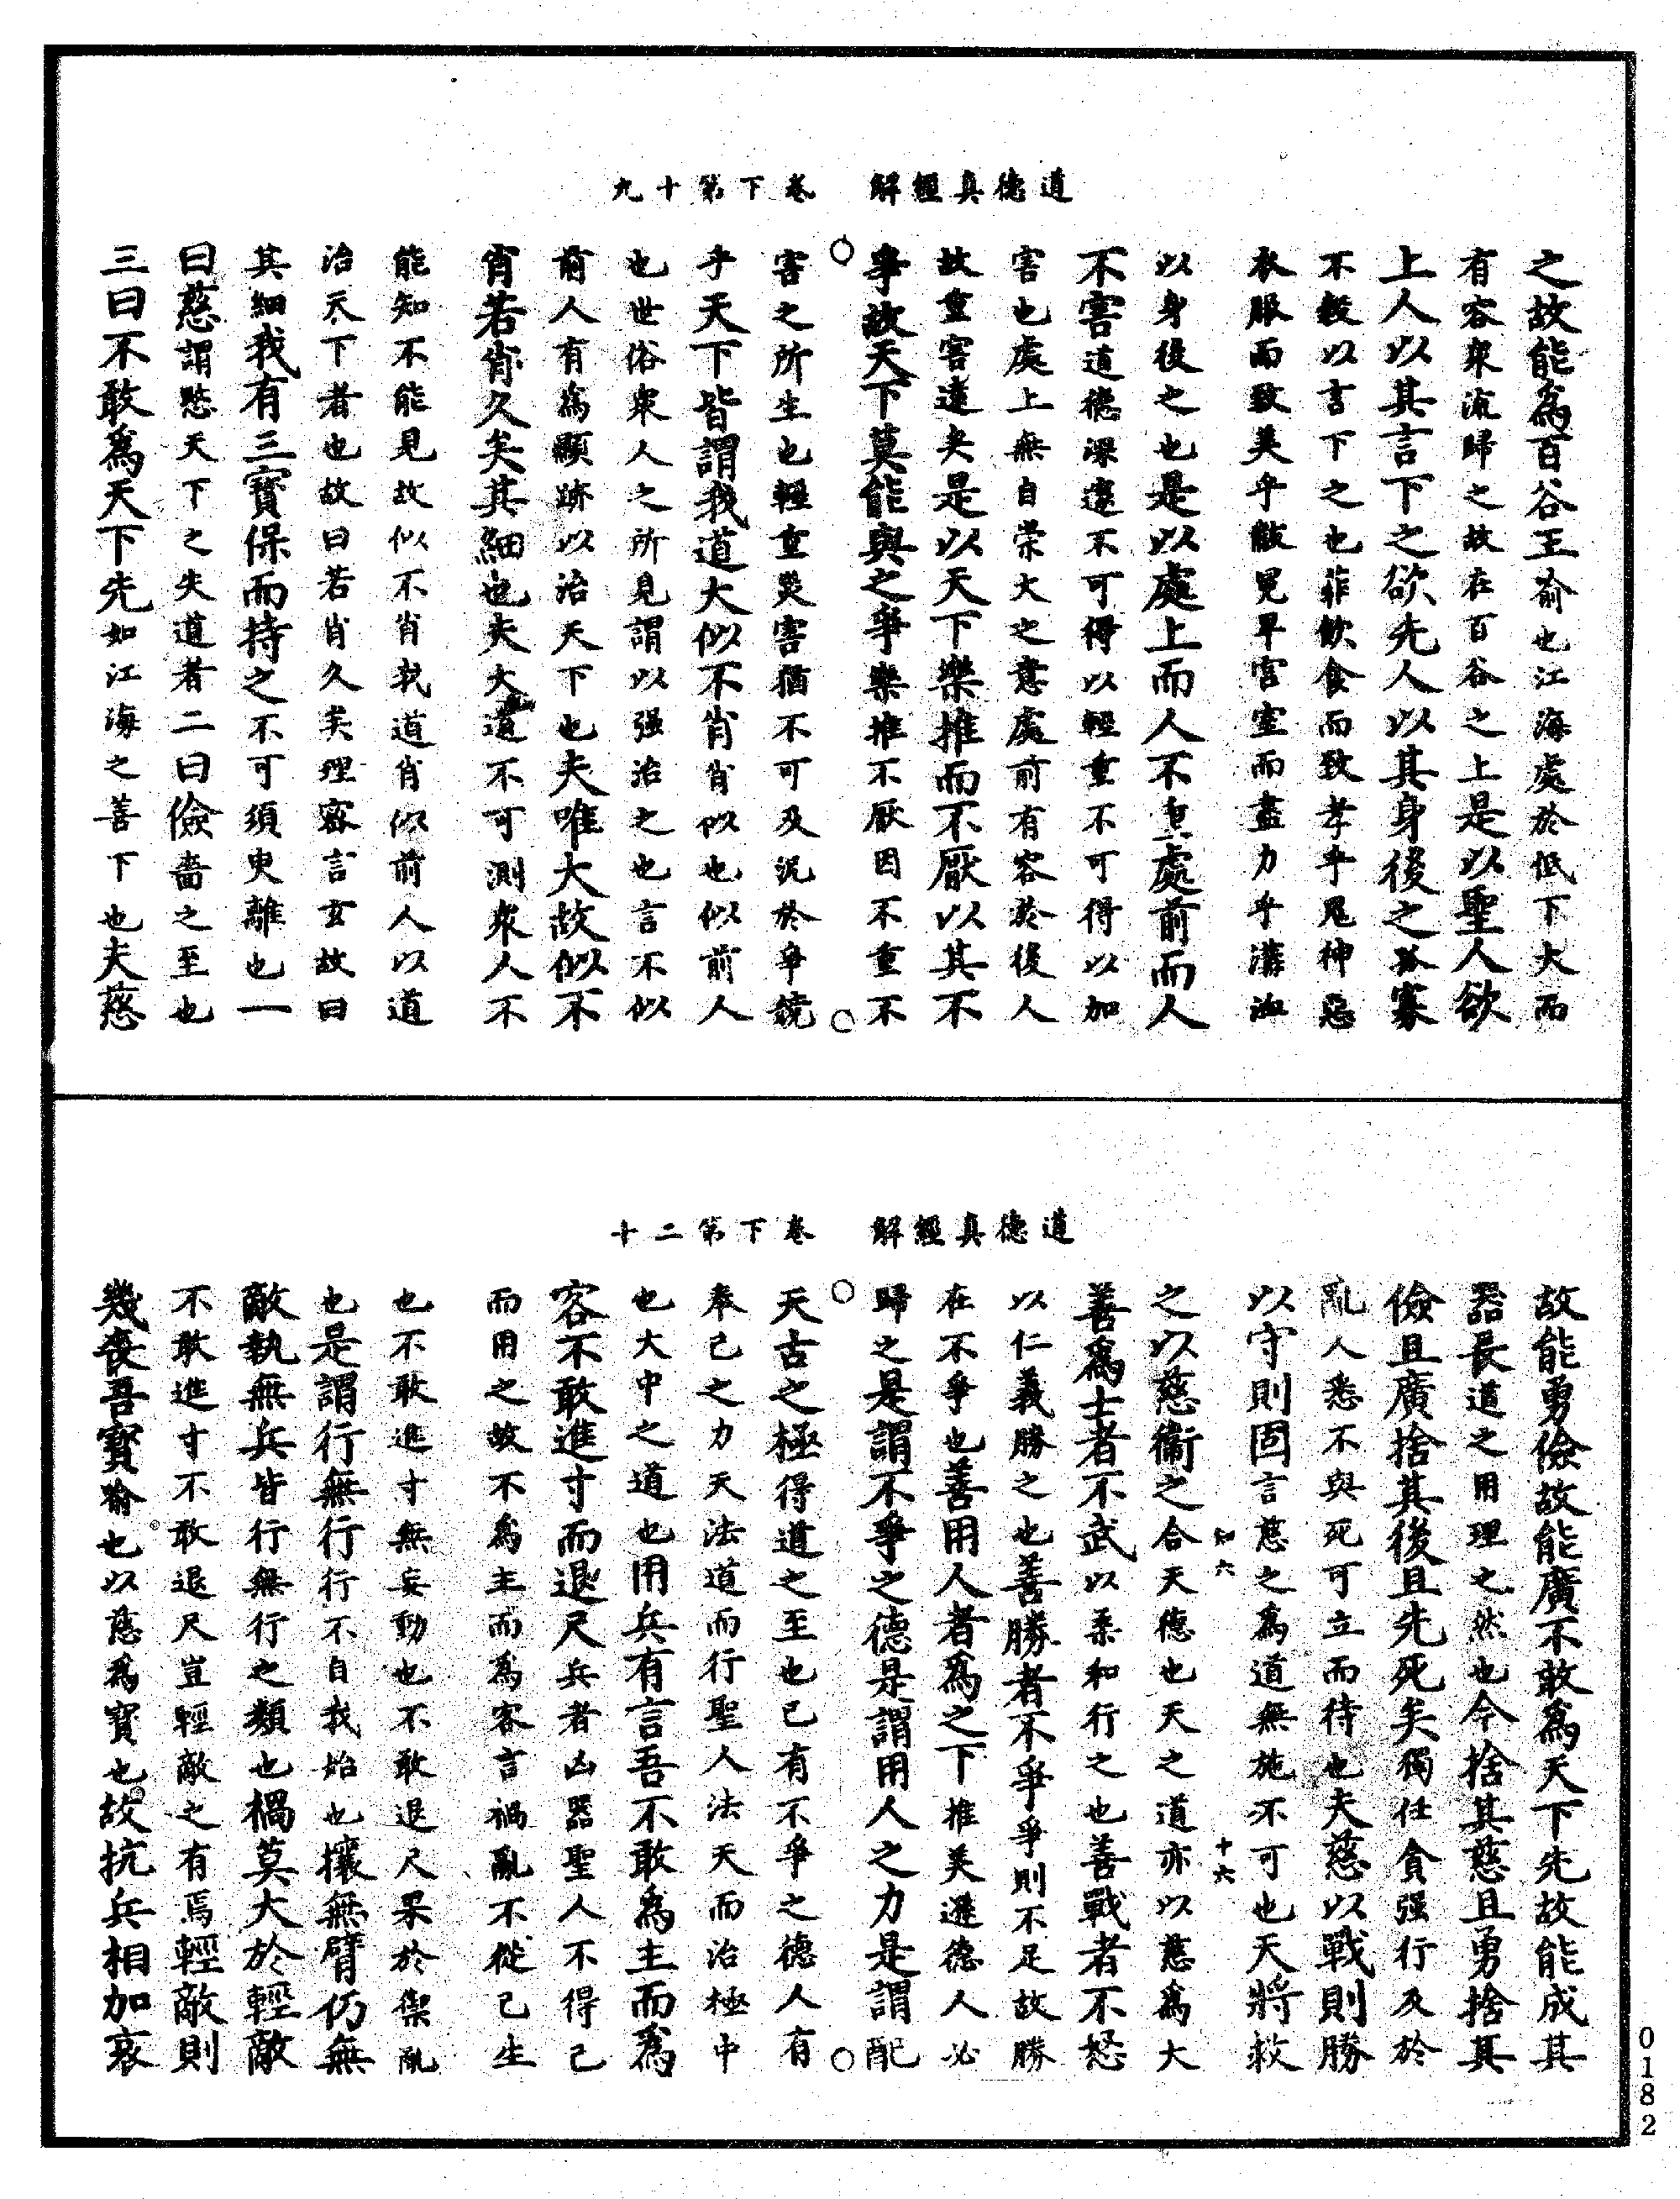 道德真經解　卷下第十九
之故能爲百谷王喻也江海處於低下大而
有容衆流歸之故在百谷之上是以聖人欲
上人以其言下之欲先人以其身後之孤寡
不穀以言下之也菲飲食而致孝乎鬼神惡
衣服而致美乎黻冕卑宮室而盡力乎溝洫
以身後之也是以處上而人不重處前而人
不害道德深遠不可得以輕重不可得以加
害也處上無自榮大之意處前有容於後人
故重害遠矣是以天下樂推而不厭以其不
爭故天下莫能與之爭樂推不厭因不重不
害之所生也輕重災害猶不可及況於爭競
乎天下皆謂我道大似不肖肖似也似前人
也世俗衆人之所見謂以强治之也言不似
前人有爲顯跡以治天下也夫唯大故似不
肖若肖久矣其細也夫大道不可測衆人不
能知不能見故似不肖我道肖似前人以道
治天下者也故曰若肖久矣理密言玄故曰
其細我有三寶保而持之不可須臾離也一
曰慈謂愍天下之失道者二曰儉嗇之至也
三曰不敢爲天下先如江海之善下也夫慈
道德真經解　卷下第二十
故能勇儉故能廣不敢爲天下先故能成其
器長道之用理之然也今捨其慈且勇捨其
儉且廣捨其後且先死矣獨任貪强行及於
亂人悉不與死可立而待也夫慈以戰則勝
以守則固言慈之爲道無施不可也天將救
知六　十六
之以慈衞之合天德也天之道亦以慈爲大
善爲士者不武以柔和行之也善戰者不怒
以仁義勝之也善勝者不爭爭則不足故勝
在不爭也善用人者爲之下推美遜德人必
歸之是謂不爭之德是謂用人之力是謂配
天古之極得道之至也已有不爭之德人有
奉己之力天法道而行聖人法天而治極中
也大中之道也用兵有言吾不敢爲主而爲
客不敢進寸而退尺兵者凶器聖人不得已
而用之故不爲主而爲客言禍亂不從己生
也不敢進寸無妄動也不敢退尺果於禦亂
也是謂行無行行不自我始也攘無臂仍無
敵執無兵皆行無行之類也禍莫大於輕敵
不敢進寸不敢退尺豈輕敵之有焉輕敵則
幾喪吾寶喻也以慈爲寶也故抗兵相加哀
0182